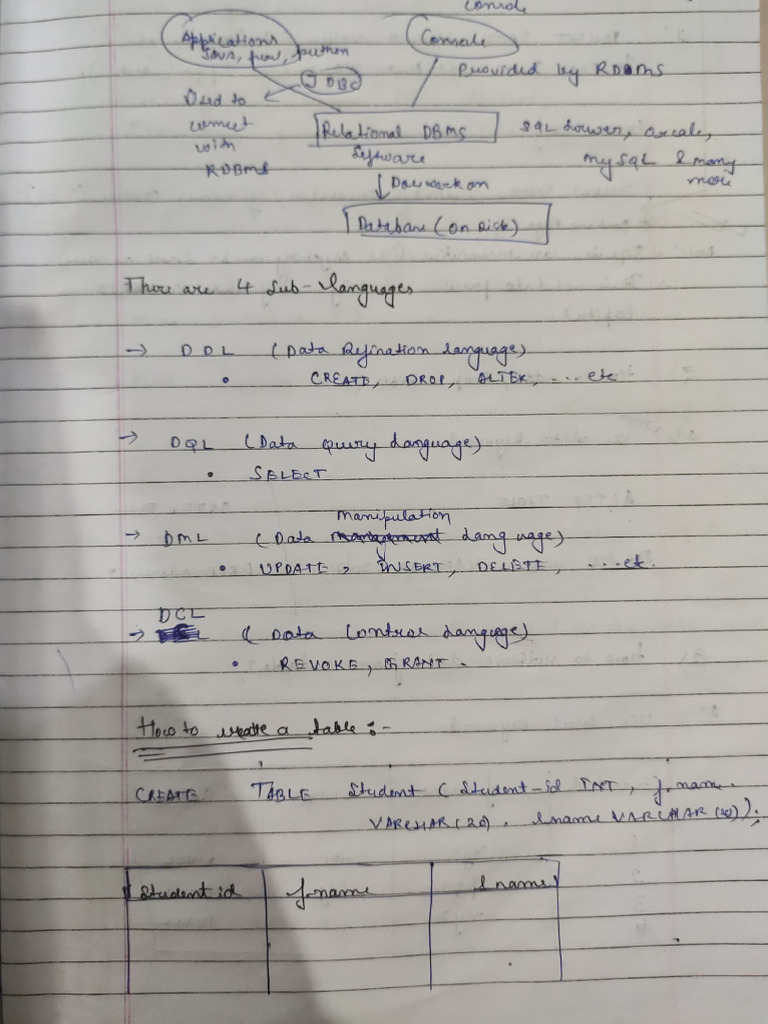 Console
Applications
JAVA, pearl, python
Console
Provided by RDBMS
JDBC
Used to
connect
with
RDBMS
Relational DBMS
Software
SQL Server, oracle,
MySQL & many
more
Does work on
Database (on Disk)
There are 4 Sub-languages
→ DDL (Data Defination language)
• CREATE, DROP, ALTER, ... etc
→ DQL (Data query Language)
• SELECT
manipulation
→ DML (Data management Language)
• UPDATE, INSERT, DELETE, ... etc.
DCL
→ (Data Control Language)
• REVOKE, GRANT.
How to create a table :-
CREATE TABLE Student (Student-id INT, f.name
VARCHAR(20), lname VARCHAR(20));
Student id f.name lname